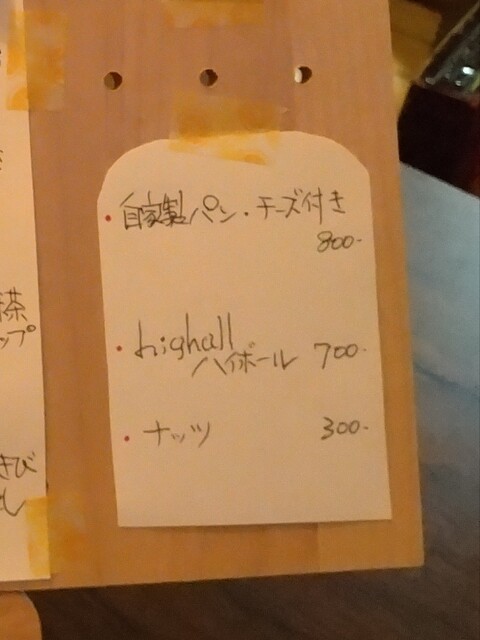 ・自家製パン・チーズ付き
800-
・highall
ハイボール 700-
・ナッツ 300-
茶
ップ
きび
し